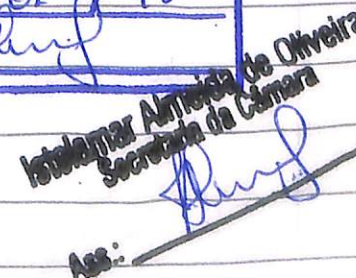 Istelamar Almeida de Oliveira
Secretada da Câmara
Ass.: